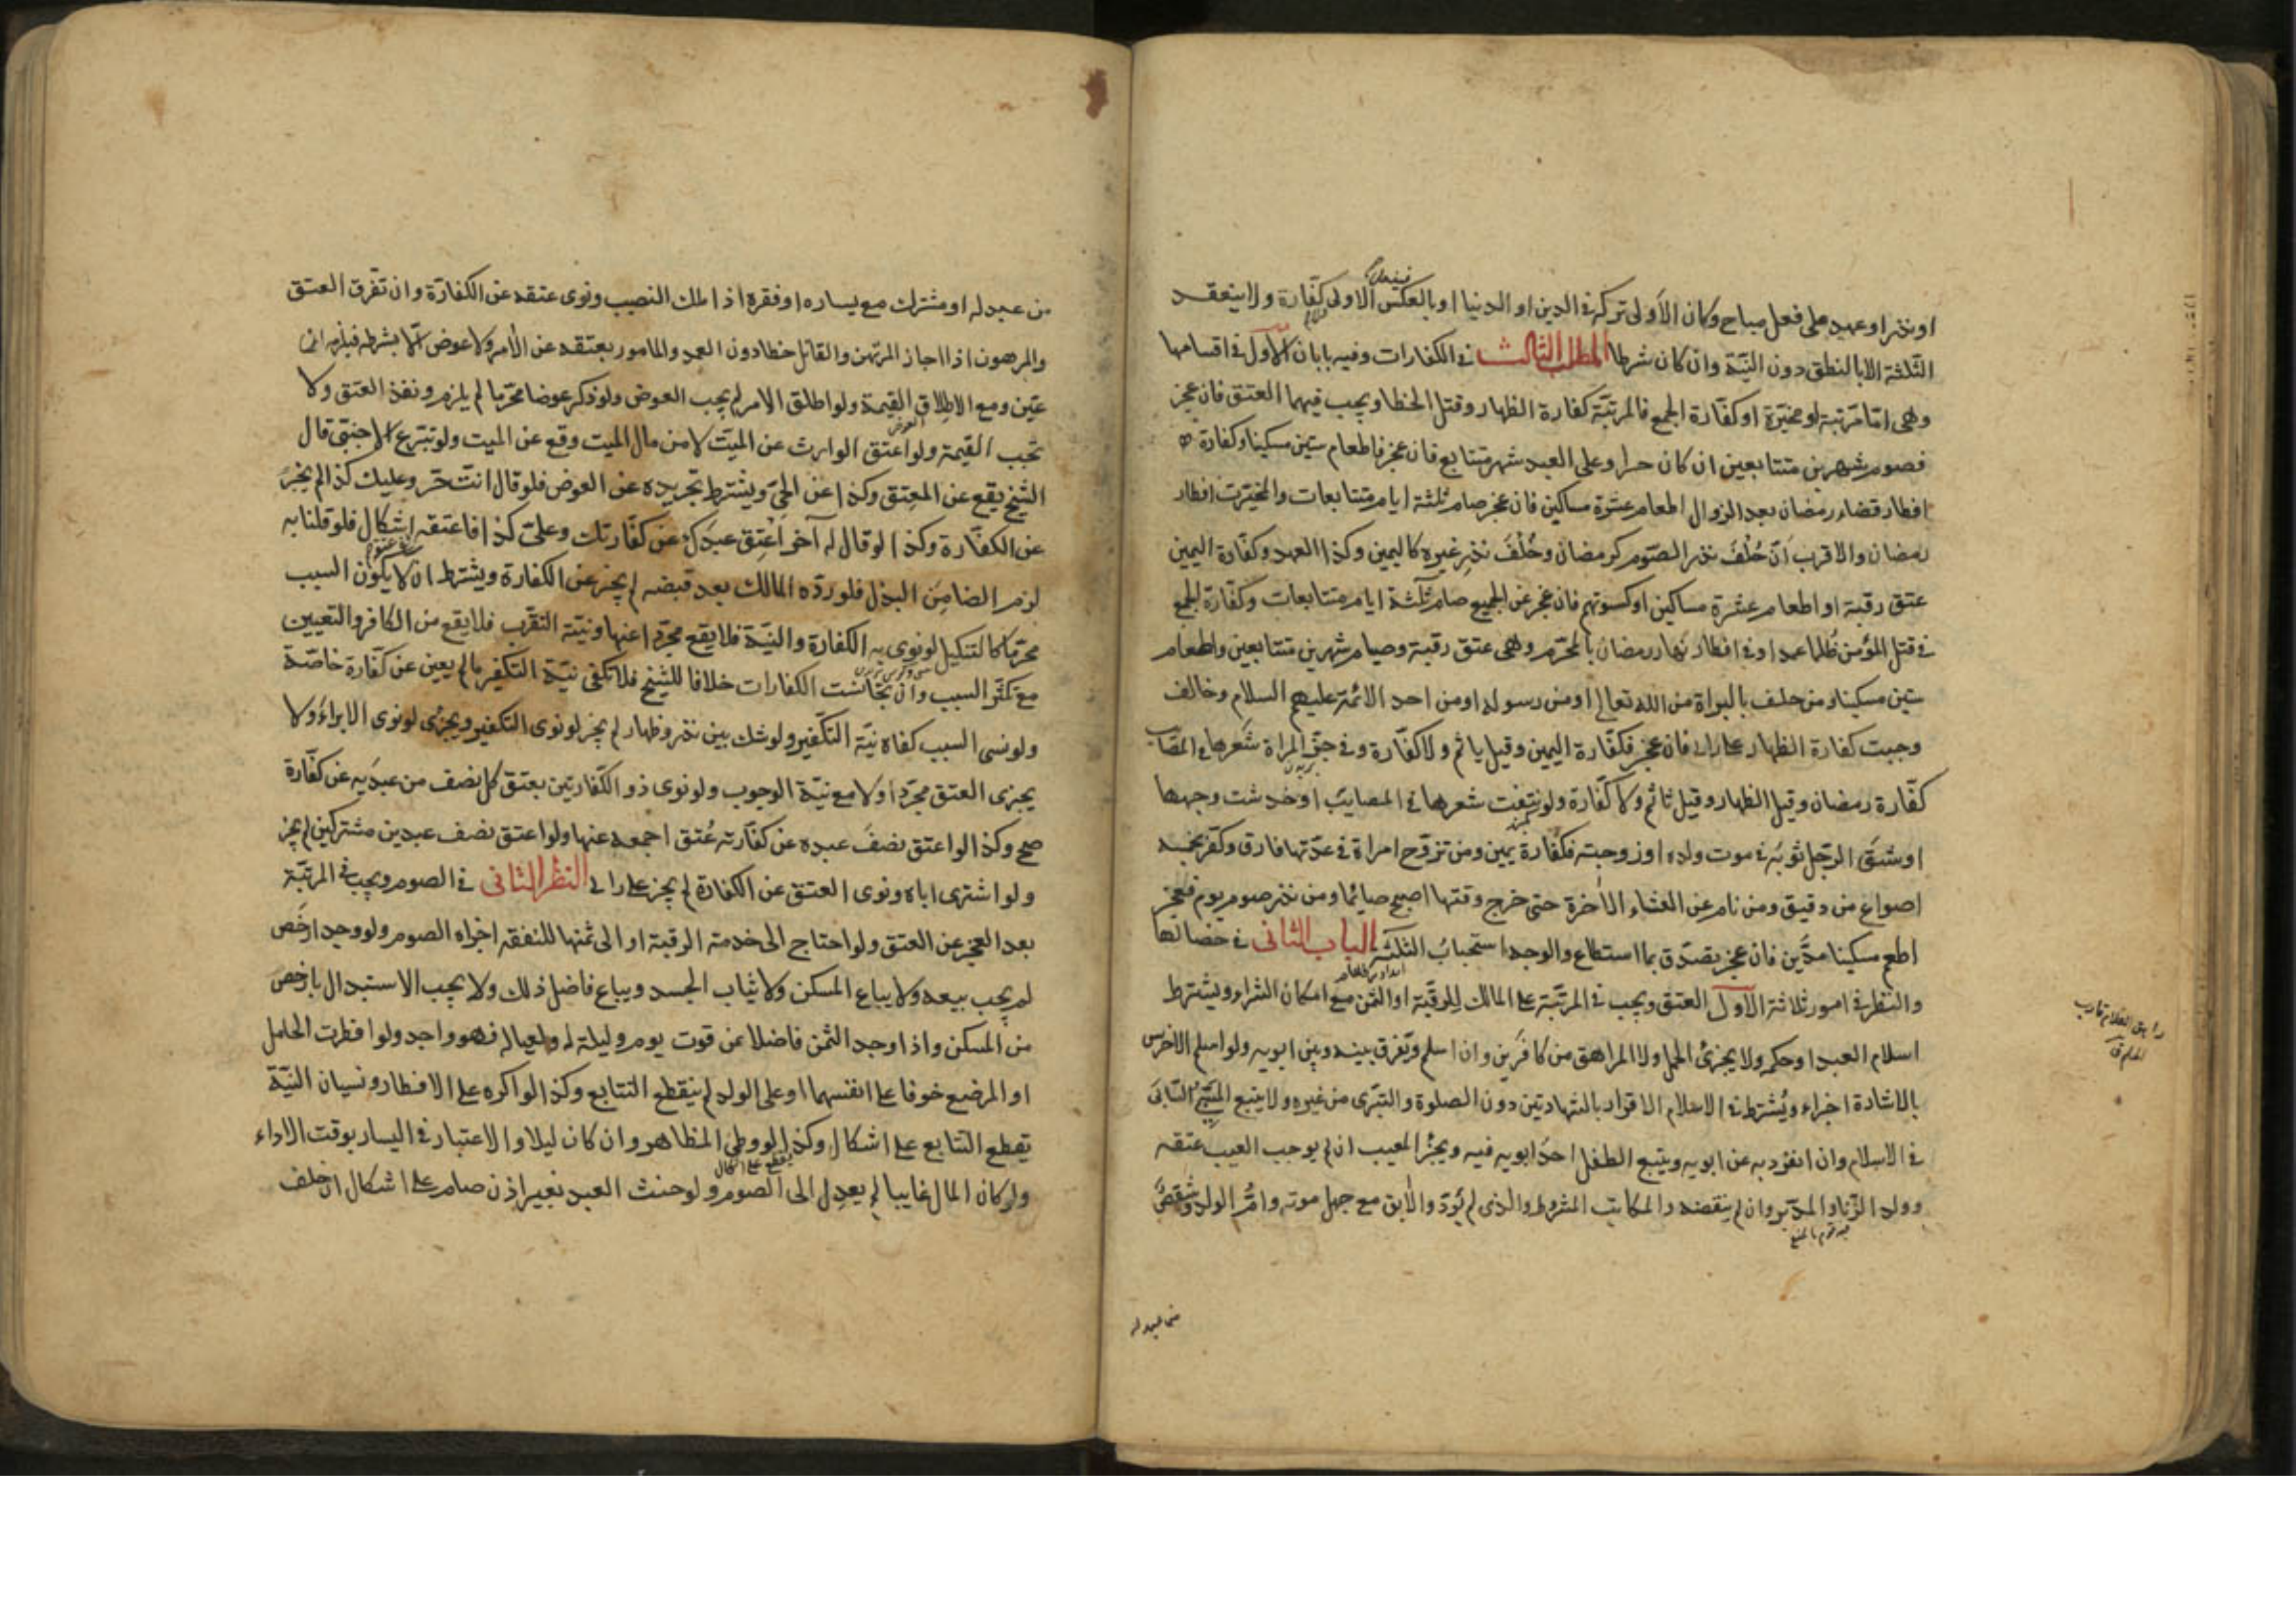 او نذر او عهد على فعل مباح وكان الأولى تركه فى الدين او الدنيا او بالعكس الاولى كفّارة ولا ينعقد
الثلثة الا بالنطق دون النيّة وان كان شرطا المطلب الثالث فى الكفارات وفيه بابان الأول فى اقسامها
وهى امّا مرّتبة او مخيّرة او كفّارة الجمع فالمرتّبة كفارة الظهار وقتل الخطا ويجب فيهما العتق فان عجز
فصوم شهرين متتابعين ان كان حرا وعلى العبد شهر متتابع فان عجز فاطعام ستين مسكينا وكفارة
افطار قضاء رمضان بعد الزوال اطعام عشرة مساكين فان عجز صام ثلثة ايام متتابعات والمخيّرة افطار
رمضان والاقرب انّ خُلْفَ نذر الصّوم كرمضان وخُلْفَ نذر غيره كاليمين وكذا العهد وكفّارة اليمين
عتق رقبة او اطعام عشرة مساكين او كسوتهم فان عجز عن الجميع صام ثلثة ايام متتابعات وكفّارة الجمع
فى قتل المؤمن ظلما عمدا وفى افطار نهار رمضان بالمحرّم وهى عتق رقبة وصيام شهرين متتابعين واطعام
ستين مسكينا ومن حلف بالبراة من الله تعالى او من رسوله او من احد الائمة عليهم السلام وخالف
وجبت كفارة الظهار على راى فان عجز فكفّارة اليمين وقيل ياثم ولا كفّارة وفى جزّ المراة شعرها فى المصاب
كفّارة رمضان وقيل الظهار وقيل تاثم ولا كفّارة ولو نتفت شعرها فى المصايب او خدشت وجهها
او شقّ الرّجل ثوبه فى موت ولده او زوجته فكفّارة يمين ومن تزوّج امراة فى عدّتها فارق وكفّر بخمسة
اصواع من دقيق ومن نام عن العشاء الاخرة حتى خرج وقتها اصبح صايما ومن نذر صوم يوم فعجز
اطعم مسكينا مدّين فان عجز تصدّق بما استطاع والوجه استحباب الثلثة الباب الثانى فى خصالها
والنظر فى امور ثلاثة الأول العتق ويجب فى المرتّبة على المالك للرقبة او الثمن مع امكان الشراء ويشترط
اسلام العبد او حكمه ولا يجزئ الحمل ولا المراهق من كافرين وان اسلم ويفرق بينه وبين ابويه ولو اسلم الاخرس
بالاشارة اجزاء ويُشترط فى الاسلام الاقرار بالشهادتين دون الصلوة والتبرّى من غيره ولا يتبع المسبىّ السّابى
فى الاسلام وان انفرد به عن ابويه ويتبع الطفل احد ابويه فيه ويجزئ المعيب ان لم يوجب العيب عتقه
وولد الزّنا والمدبّر وان لم ينقضه والمكاتب المشروط والذى لم يُؤدّ والآبق مع جهل موته وامّ الولد وشقصٌ
من عبد له
من عبد له او مشترك مع يساره او فقره اذا ملك النصيب ونوى عتقه عن الكفارة وان تفرّق العتق
والمرهون اذا اجاز المرتهن والقاتل خطا دون العمد والمامور بعتقه عن الآمر ولا عوض الّا بشرطه فيلزمه ان
عيّن ومع الاطلاق القيمة ولو اطلق الامر لم يجب العوض ولو ذكر عوضا محرّما لم يلزم ونفذ العتق ولا
تجب القيمة ولو اعتق الوارث عن الميّت لا من مال الميت وقع عن الميت ولو تبرّع الاجنبىّ قال
الشيخ يقع عن المعتق وكذا عن الحىّ ويشترط تجريده عن العوض فلو قال انت حرّ وعليك كذا لم يجزء
عن الكفّارة وكذا لو قال له آخر اَعْتِق عبدك عن كفّارتك وعلىّ كذا فاعتقه اشكال فلو قلنا به
لزم الضامن البذل فلو ردّه المالك بعد قبضه لم يجز عن الكفارة ويشترط ان لا يكون السبب
محرّما كالتنكيل لو نوى به الكفارة والنيّة فلا يقع مجرّدا عنها ونيّة التقرّب فلا يقع من الكافر والتعيين
مع تكثّر السبب وان تجانست الكفارات خلافا للشيخ فلا تكفى نيّة التكفير ما لم يعين عن كفّارة خاصّة
ولو نسى السبب كفاه نيّة التكفير ولو شك بين نذر وظهار لم يجز لو نوى التكفير ويجزئ لو نوى الابراء ولا
يجزى العتق مجرّدا ولا مع نيّة الوجوب ولو نوى ذو الكفّارتين بعتق كل نصف من عبديه عن كفّارة
صح وكذا لو اعتق نصفَ عبده عن كفّارته عُتق اجمعه عنها ولو اعتق نصف عبدين مشتركين لم يجز
ولو اشترى اباه ونوى العتق عن الكفارة لم يجز على راى النظر الثانى فى الصوم ويجب فى المرتّبة
بعد العجز عن العتق ولو احتاج الى خدمة الرقبة او الى ثمنها للنفقة اجزاه الصوم ولو وجد ارخص
لم يجب بيعه ولا يباع المسكن ولا ثياب الجسد ويباع فاضل ذلك ولا يجب الاستبدال بارخص
من المسكن واذا وجد الثمن فاضلا عن قوت يوم وليلة له ولعياله فهو واجد ولو افطرت الحامل
او المرضع خوفا على انفسهما او على الولد لم ينقطع التتابع وكذا لو اكره على الافطار ونسيان النيّة
تقطع التتابع على اشكال وكذا لو وطئ المظاهر وان كان ليلا والاعتبار فى اليسار بوقت الاداء
ولو كان المال غايبا لم يعدل الى الصوم ولو حنث العبد بغير اذن صام على اشكال ان حلف